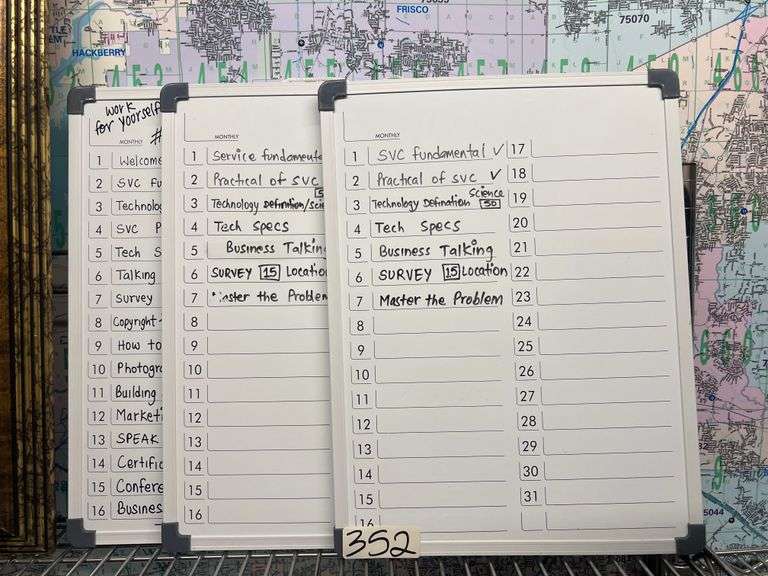 FRISCO
75070
HACKBERRY
work
for yourself
MONTHLY #
1 Welcome
2 SVC Fu
3 Technolo
4 SVC P
5 Tech S
6 Talking
7 Survey
8 Copyright
9 How to
10 Photogra
11 Building
12 Marketi
13 SPEAK
14 Certific
15 Confere
16 Busines
MONTHLY
1 Service fundament
2 Practical of SVC
3 Technology Defination/Scie
4 Tech Specs
5 Business Talking
6 SURVEY 15 Location
7 Master the Problem
8
9
10
11
12
13
14
15
16
MONTHLY
1 SVC fundamental ✓
2 Practical of SVC ✓
3 Technology Defination Science 50
4 Tech Specs
5 Business Talking
6 SURVEY 15 Location
7 Master the Problem
8
9
10
11
12
13
14
15
16
17
18
19
20
21
22
23
24
25
26
27
28
29
30
31
352
5044